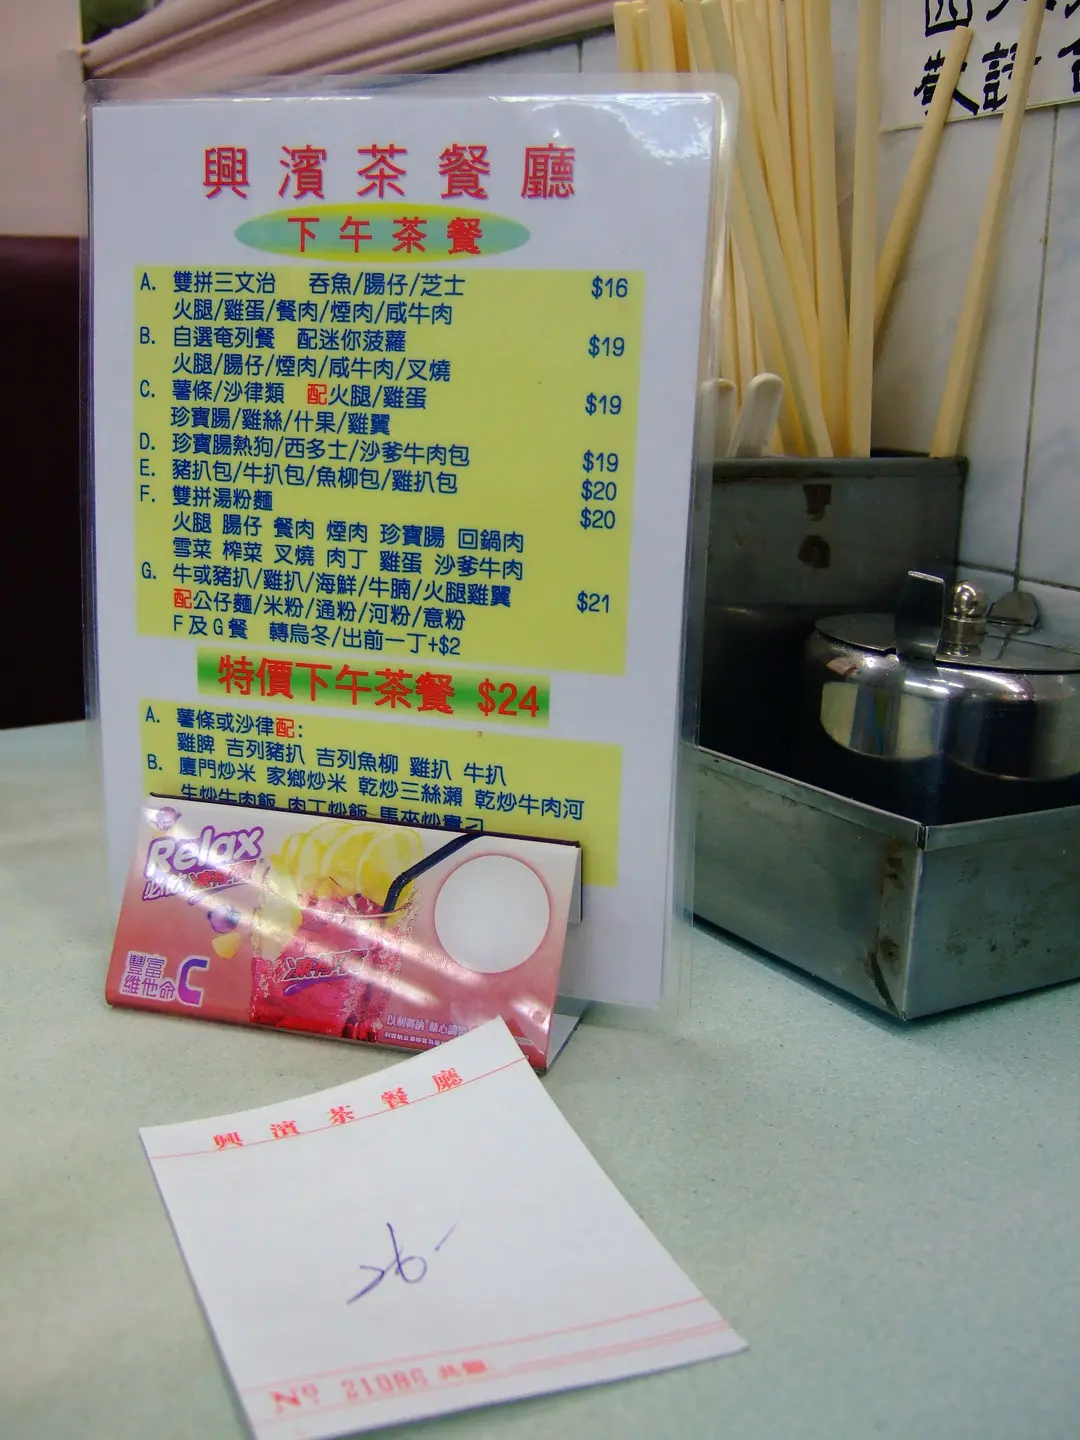 興濱茶餐廳
下午茶餐
A. 雙拼三文治 吞魚/腸仔/芝士 $16
火腿/雞蛋/餐肉/煙肉/咸牛肉
B. 自選奄列餐 配迷你菠蘿 $19
火腿/腸仔/煙肉/咸牛肉/叉燒
C. 薯條/沙律類 配火腿/雞蛋 $19
珍寶腸/雞絲/什果/雞翼
D. 珍寶腸熱狗/西多士/沙爹牛肉包 $19
E. 豬扒包/牛扒包/魚柳包/雞扒包 $20
F. 雙拼湯粉麵 $20
火腿 腸仔 餐肉 煙肉 珍寶腸 回鍋肉
雪菜 榨菜 叉燒 肉丁 雞蛋 沙爹牛肉
G. 牛或豬扒/雞扒/海鮮/牛腩/火腿雞翼 $21
配公仔麵/米粉/通粉/河粉/意粉
F及G餐 轉烏冬/出前一丁+$2
特價下午茶餐 $24
A. 薯條或沙律配:
雞脾 吉列豬扒 吉列魚柳 雞扒 牛扒
B. 廈門炒米 家鄉炒米 乾炒三絲瀨 乾炒牛肉河
生炒牛肉飯 肉丁炒飯 馬來炒貴刁
Relax
豐富
維他命C
興濱茶餐廳
26-
Nº 21086 共銀